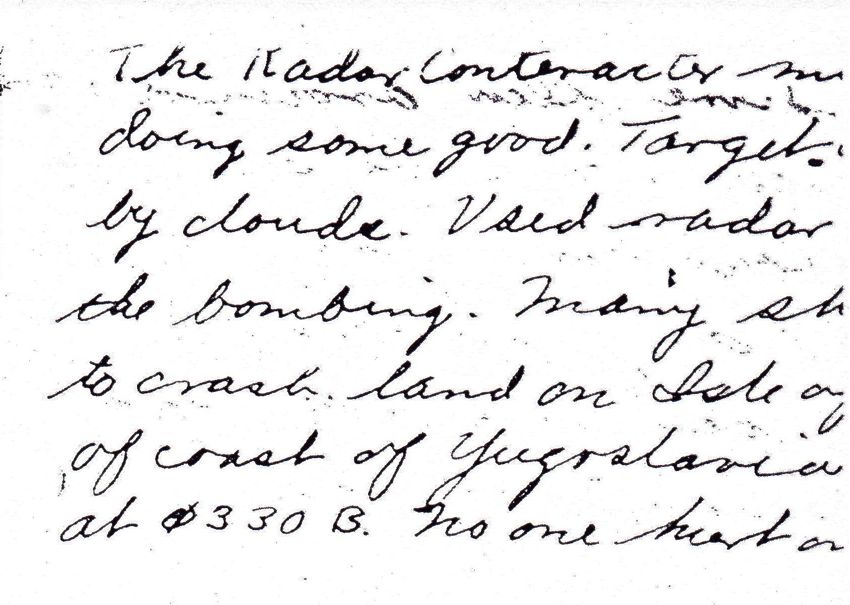 The Radar Conteracter
doing some good. Target
by clouds. Used radar
the bombing. Many
to crash land on Isle
of coast of Yugoslavia
at 0330 B. No one hurt